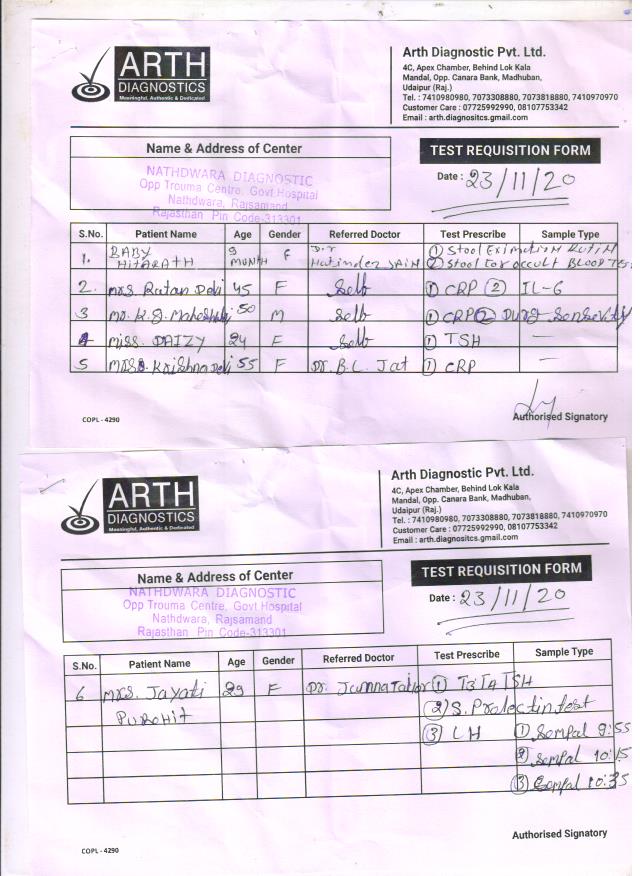 ARTH
DIAGNOSTICS
Meaningful, Authentic & Dedicated
Arth Diagnostic Pvt. Ltd.
4C, Apex Chamber, Behind Lok Kala
Mandal, Opp. Canara Bank, Madhuban,
Udaipur (Raj.)
Tel. : 7410980980, 7073308880, 7073818880, 7410970970
Customer Care : 07725992990, 08107753342
Email : arth.diagnositcs.gmail.com
Name & Address of Center
NATHDWARA DIAGNOSTIC
Opp Trouma Centre, Govt Hospital
Nathdwara, Rajsamand
Rajasthan Pin Code-313301
TEST REQUISITION FORM
Date : 23/11/20
S.No. Patient Name Age Gender Referred Doctor Test Prescribe Sample Type
1. BABY HITARATH 9 MONTH F Dr JAIN ① Stool RUTIN
② Stool For occult BLOOD TES
2. Mrs. Ratan Devi 45 F Self ① CRP ② IL-6
3 50 M Self ① CRP ②
4 Miss. DAIZY 24 F Self ① TSH —
5 Mrs. Krishna Devi 55 F Dr. B.L. Jat ① CRP —
Authorised Signatory
COPL - 4290
ARTH
DIAGNOSTICS
Meaningful, Authentic & Dedicated
Arth Diagnostic Pvt. Ltd.
4C, Apex Chamber, Behind Lok Kala
Mandal, Opp. Canara Bank, Madhuban,
Udaipur (Raj.)
Tel. : 7410980980, 7073308880, 7073818880, 7410970970
Customer Care : 07725992990, 08107753342
Email : arth.diagnositcs.gmail.com
Name & Address of Center
NATHDWARA DIAGNOSTIC
Opp Trouma Centre, Govt Hospital
Nathdwara, Rajsamand
Rajasthan Pin Code-313301
TEST REQUISITION FORM
Date : 23/11/20
S.No. Patient Name Age Gender Referred Doctor Test Prescribe Sample Type
6 Mrs. Jayati 29 F Dr. ① T3 T4 TSH
PUROHIT ② S. Prolectin test
③ LH ① Sempal 9:55
② Sempal 10:15
③ Sempal 10:35
Authorised Signatory
COPL - 4290